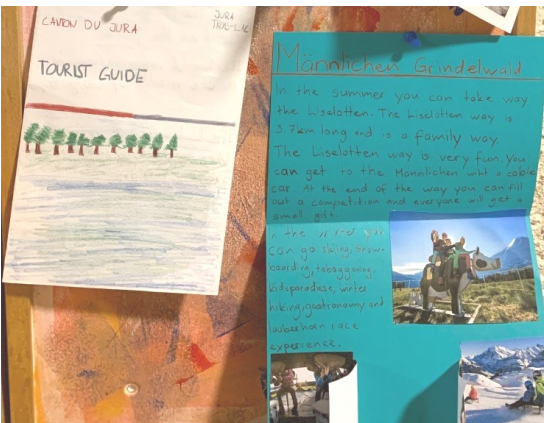 CANTON DU JURA
JURA
TROIS-LAC
TOURIST GUIDE
Männlichen Grindelwald
In the summer you can take way
the Liselotten. The Liselotten way is
3.7km long and is a family way.
The Liselotten way is very fun. You
can get to the Männlichen wiht a cable
car. At the end of the way you can fill
out a competition and everyone will get a
small gift.
In the you
can go skiing, snow-
boarding, tobogganing,
kidsparadise, winter
hiking, gastronomy and
lauberhorn race
experience.